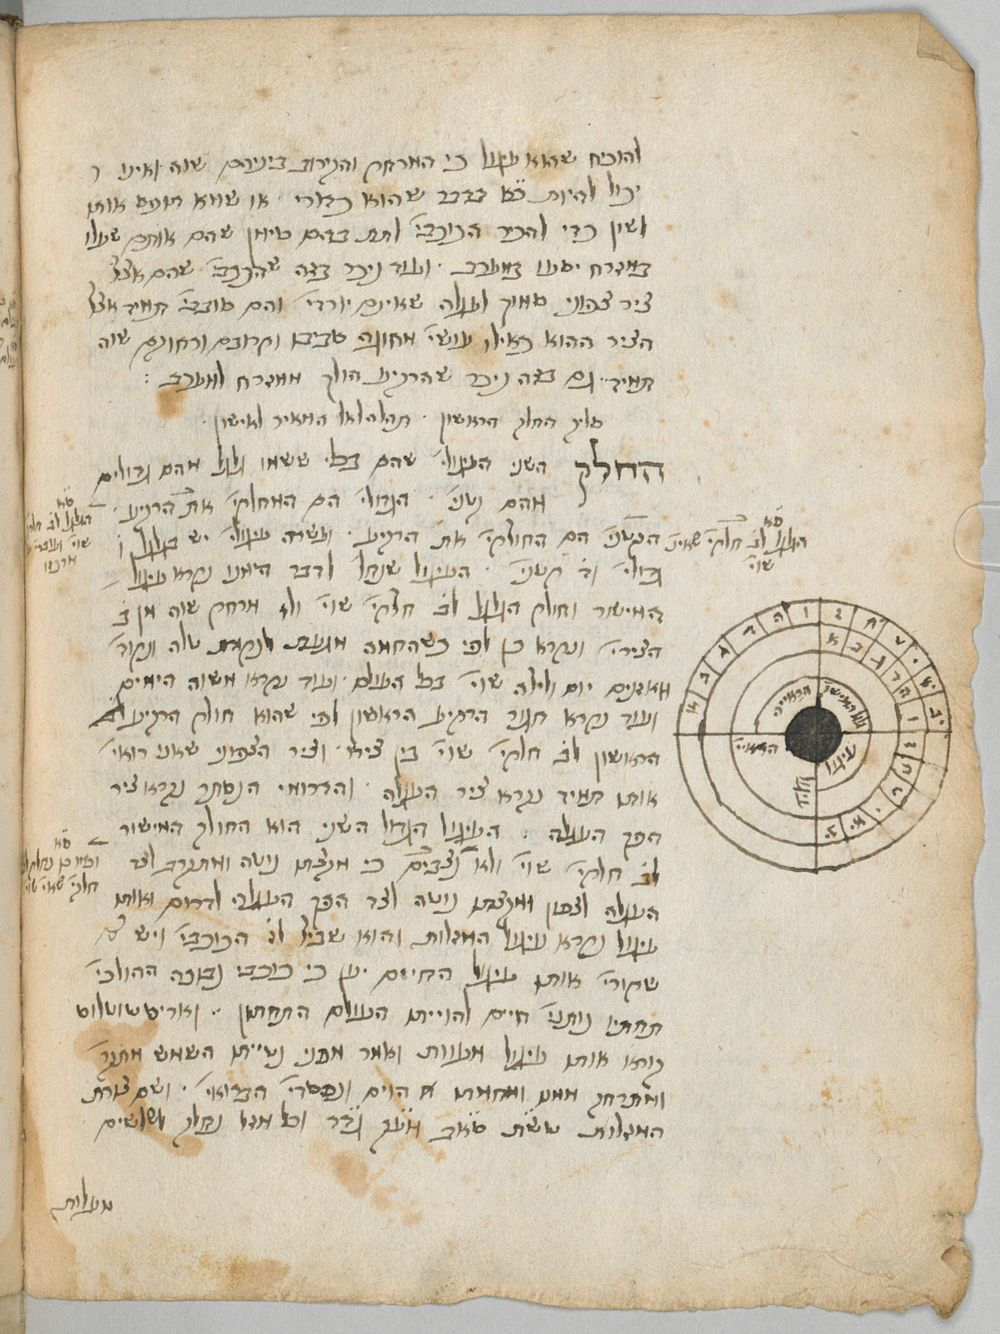 להוכיח שהוא עגול כי המרחק והקירוב ביניהם שוה ואינו
יכול להיות כ״א בדבר שהוא כדורי . או שמא תופס אותו
ושיין כדי להכיר הכוכבי׳ לתת בהם סימן שהם אותם שעלו
במזרח יסעו במערב . ועוד ניכר בזה שהככבי׳ שהם אצל
ציר צפוני סמוך לעגלה שאינם יורדי׳ והם סובבי׳ תמיד אצל
הציר ההוא כאילו עושי׳ מחוגה סביבו וקרובם ורחוקם שוה
תמיד . גם בזה ניכר שהרקיע הולך ממזרח למערב :
סליק החלק הראשון . תהלה לאל המאיר לאישון .
החלק השני העיגולי׳ שהם בכל׳ ששמו גלגל מהם גדולים
מהם קטני׳ . הגדולי׳ הם המחלקי׳ את הרקיע .
הקטני׳ הם החולקי׳ את הרקיע . ועשרה עיגולי׳ יש בגלגל ו׳
גדולי׳ וד׳ קטני׳ . העיגול שנחל לדבר הימנו נקרא עיגול
המישור וחולק הגלגל לב׳ חלקי׳ שוי׳ ולו מרחק שוה מן ב׳
הצירי׳ ונקרא כן לפי כשהחמה מגעת לנקודת טלה ונקוד׳
מאזנים יום ולילה שוי׳ בכל העולם . ועוד נקרא משוה הימים
ועוד נקרא חגור הרקיע הראשון לפי שהוא חולק הרקיע
הראשון לב׳ חלקי׳ שוי׳ בין צירי׳ . וציר הצפוני שאנו רואי׳
אותו תמיד נקרא ציר העגלה . והדרומי הנסתר נקרא ציר
הפך העגלה : העיגול הגדול השני הוא החולק המישור
לב׳ חלקי׳ שוי׳ ולא נצבים כי מקצתו נוטה ומתקרב לצד
העגלה לצפון ומקצתו נוטה לצד הפך העגלה לדרום ואותו
עיגול נקרא עיגול המזלות והוא שביל לז׳ הכוכבי׳ ויש
שקורי׳ אותו עיגול החיים יען כי כוכבי נבוכה ההולכי׳
תחתיו נותני׳ חיים להויית העולם התחתון . ואריסטוטלוס
קורא אותו עיגול מעוות ואמר מפני נטיית השמש מתקרב
ומתרחק ממנו ומחמתו הוים ונפסדי׳ הברואי׳ . ושם צורת
המזלות טש״ת סא״ב מע״ק גד״ד וכל מזל נחלק לשלשים
מעלות
ס״א
הגלגל לב׳ חלקי׳ שאינ׳
שוי׳
ס״א
הגלגל לב׳ חלקי׳
שוי׳
ס״א
חלקי׳ שאי׳ שוי׳
א ב ג ד ה ו ז ח ט י יא יב
א ב ג ד ה ו ז ח ט י יא יב
האישי׳
הראיי׳
הראיי׳
עיגול